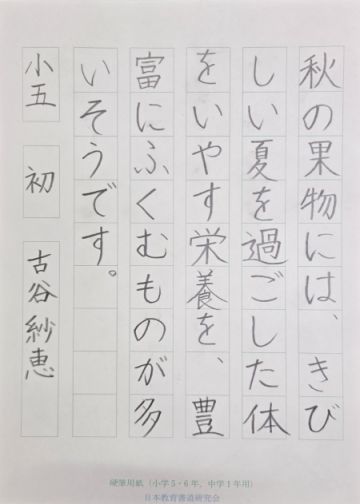 秋の果物には、きび
しい夏を過ごした体
をいやす栄養を、豊
富にふくむものが多
いそうです。
小五 初 古谷紗恵
硬筆用紙（小学5・6年，中学1年用）
日本教育書道研究会